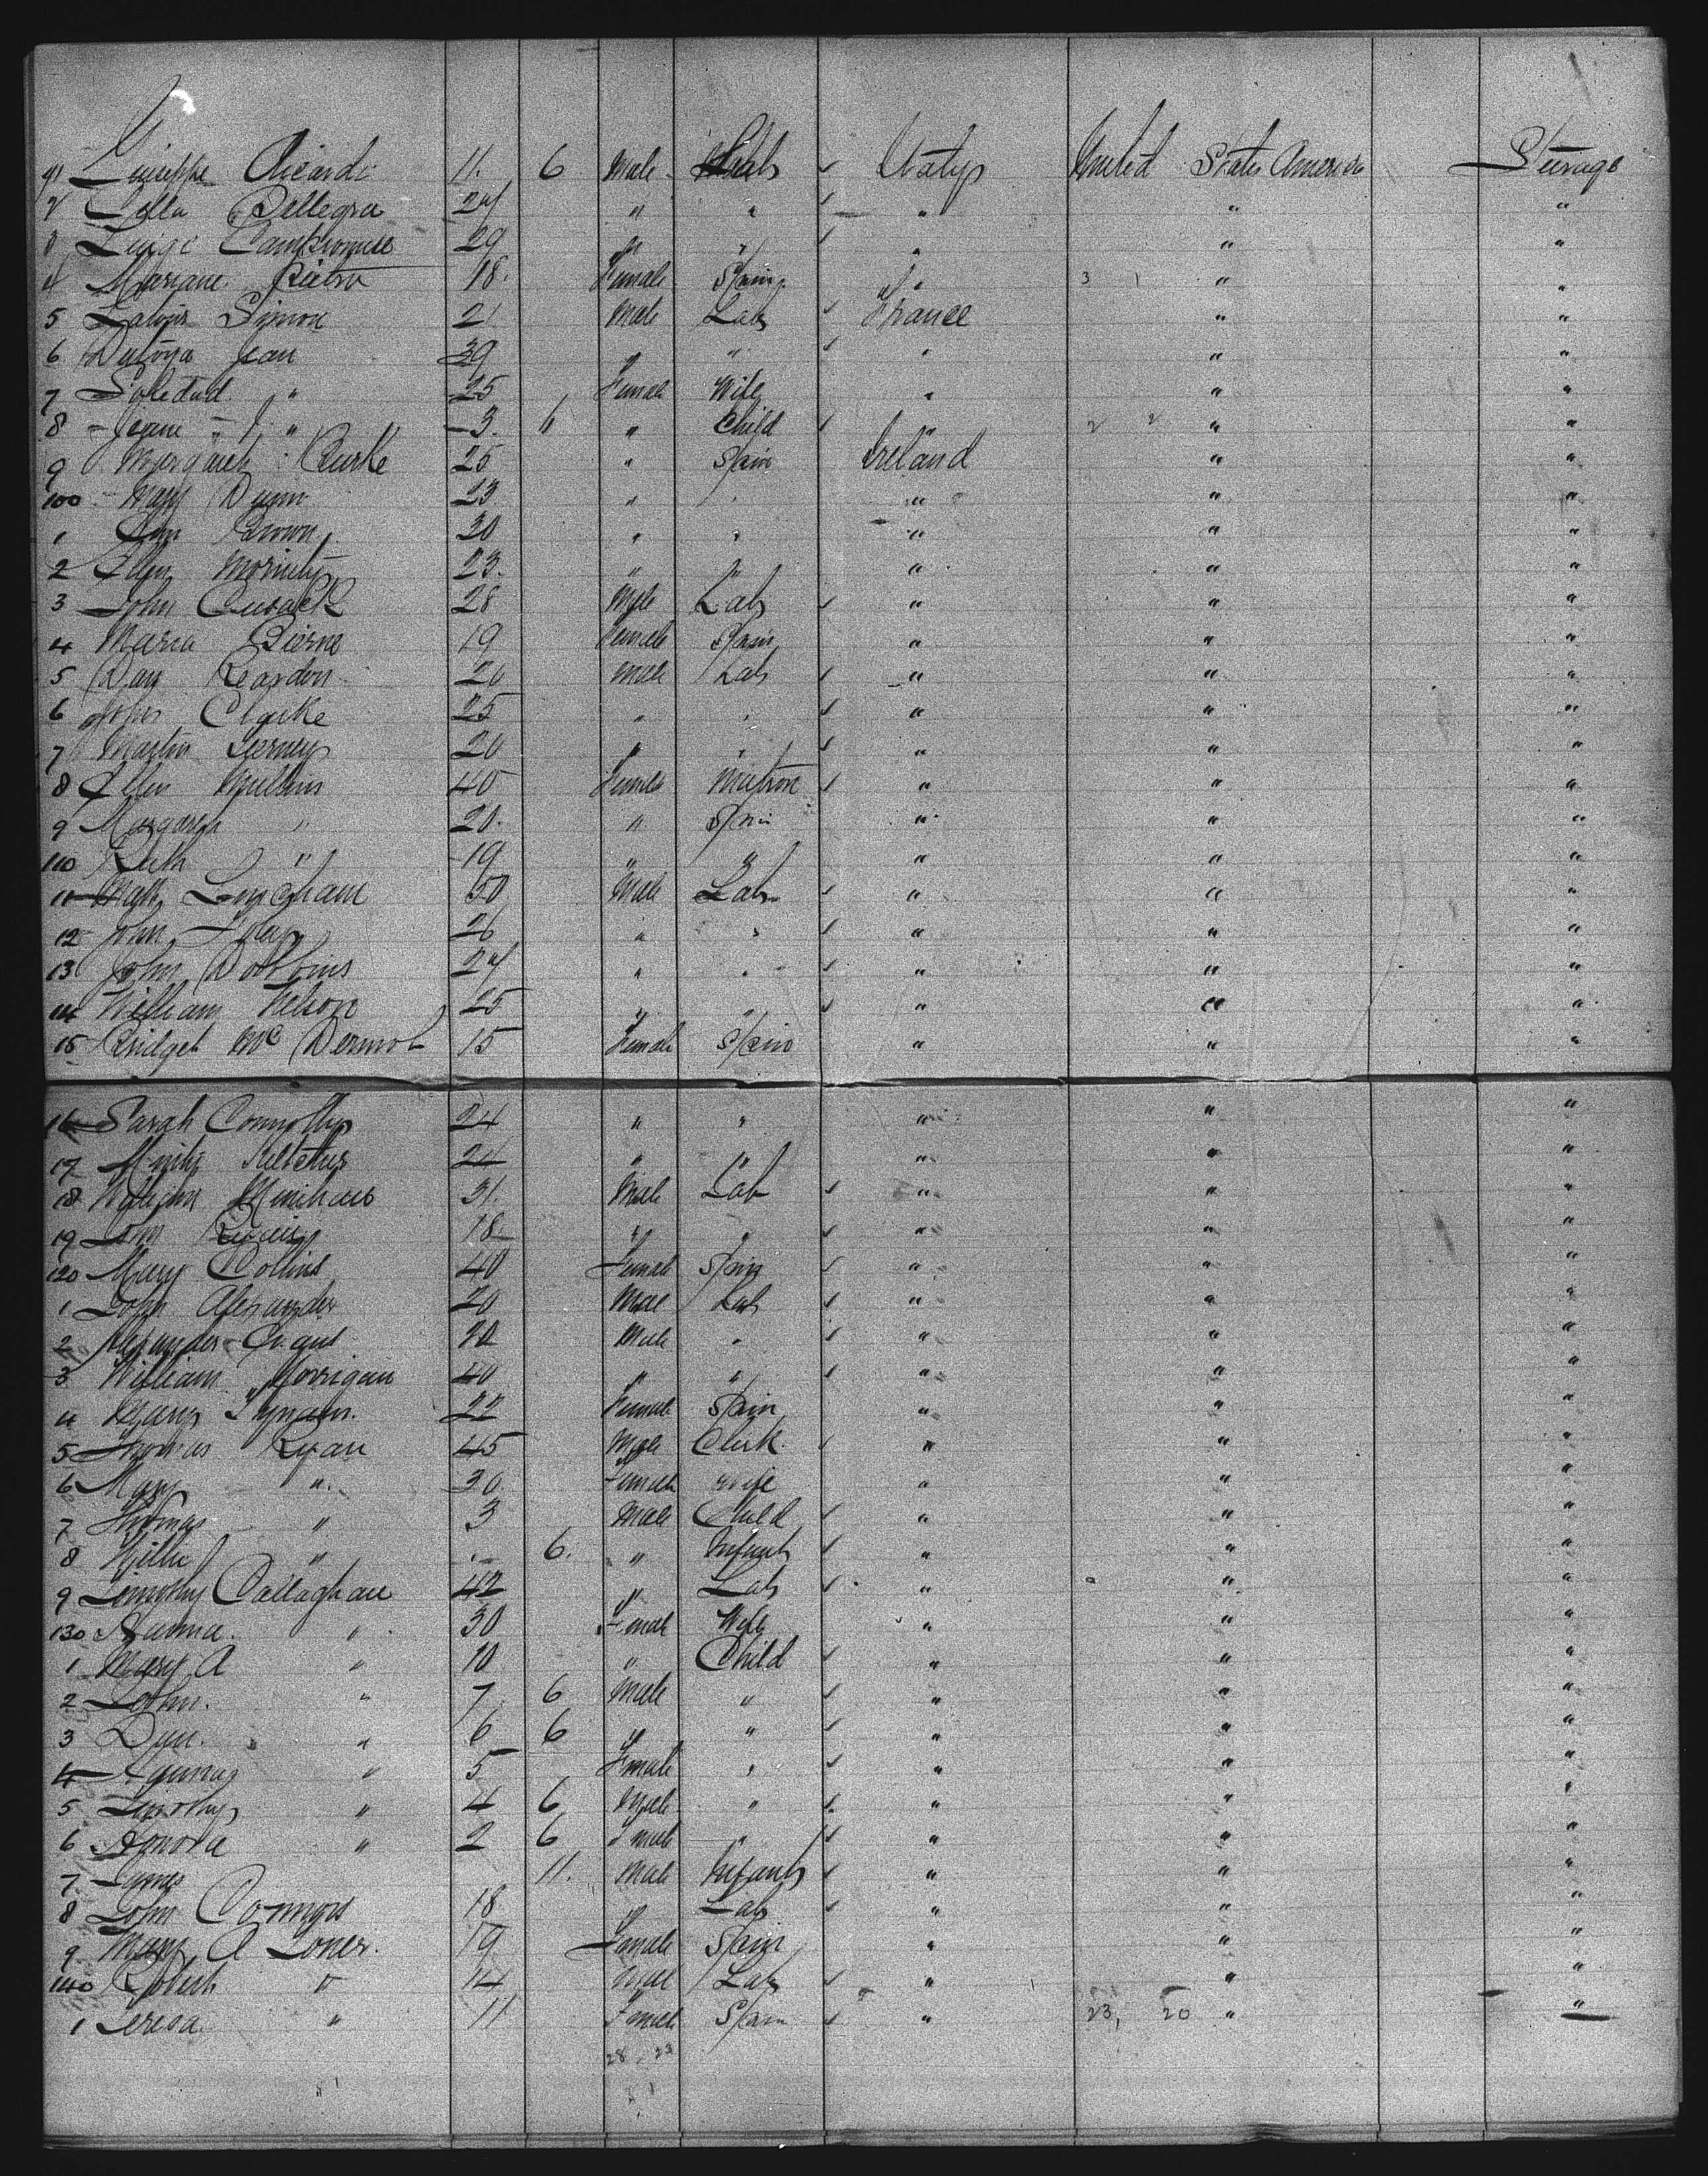 91 Giuseppe Ricardi 11. 6 Male Lab Italy United States America Steerage
2 Pellegra 27 " " " " "
3 Luigi 29 " " " " "
4 Mariane Pietra 18. Female Spin " 3 1 " "
5 Simon 21 Male Lab France " "
6 Jean 39 " " " " "
7 Soledad " 25 Female Wife " " "
8 " 3. 6 " Child " 2 2 " "
9 Margaret Burke 25 " Spin Ireland " "
100 Mary Dunn 23 " " " " "
1 Ann Brown 30 " " " " "
2 Ellen Moriarty 23. " " " " "
3 John Cusack 28 Male Lab " " "
4 Maria Beirne 19 Female Spin " " "
5 Dan Reardon 20 Male Lab " " "
6 John Clarke 25 " " " " "
7 Martin 20 " " " " "
8 Ellen Mullins 40 Female Matron " " "
9 Margaret " 20. " Spin " " "
110 Kath " 19 " " " " "
11 50 Male Lab " " "
12 John Foley 26 " " " " "
13 John Dobbins 27 " " " " "
14 William Nelson 25 " " " " "
15 Bridget Mc Dermot 15 Female Spin " " "
16 Sarah Connolly 24 " " " " "
17 24 " " " " "
18 William Minihan 31. Male Lab " " "
19 18 " " " " "
120 Mary Collins 40 Female Spin " " "
1 John Alexander 20 Male Lab " " "
2 Alexander Grant 20 Male " " " "
3 William Horrigan 40 " " " " "
4 Mary Lynam. 22 Female Spin " " "
5 Thomas Ryan 45 Male Clerk " " "
6 Mary " 30 Female Wife " " "
7 Thomas " 3 Male Child " " "
8 Willie " 6. " Infant " " "
9 Timothy Callaghan 42 " Lab " " "
130 Hanna. " 30 Female Wife " " "
1 Mary A " 10 " Child " " "
2 John. " 7 6 Male " " " "
3 Dan. " 6 6 " " " " "
4 " 5 Female " " " "
5 Timothy " 4 6 Male " " " "
6 Honora " 2 6 Female " " " "
7 James 11. Male Infant " " "
8 John Connors 18 " Lab " " "
9 Mary A Jones. 19 Female Spin " " "
140 Robert " 14 Male Lab " " "
1 Teresa. " 11 Female Spin " 23, 20 " "
28 23